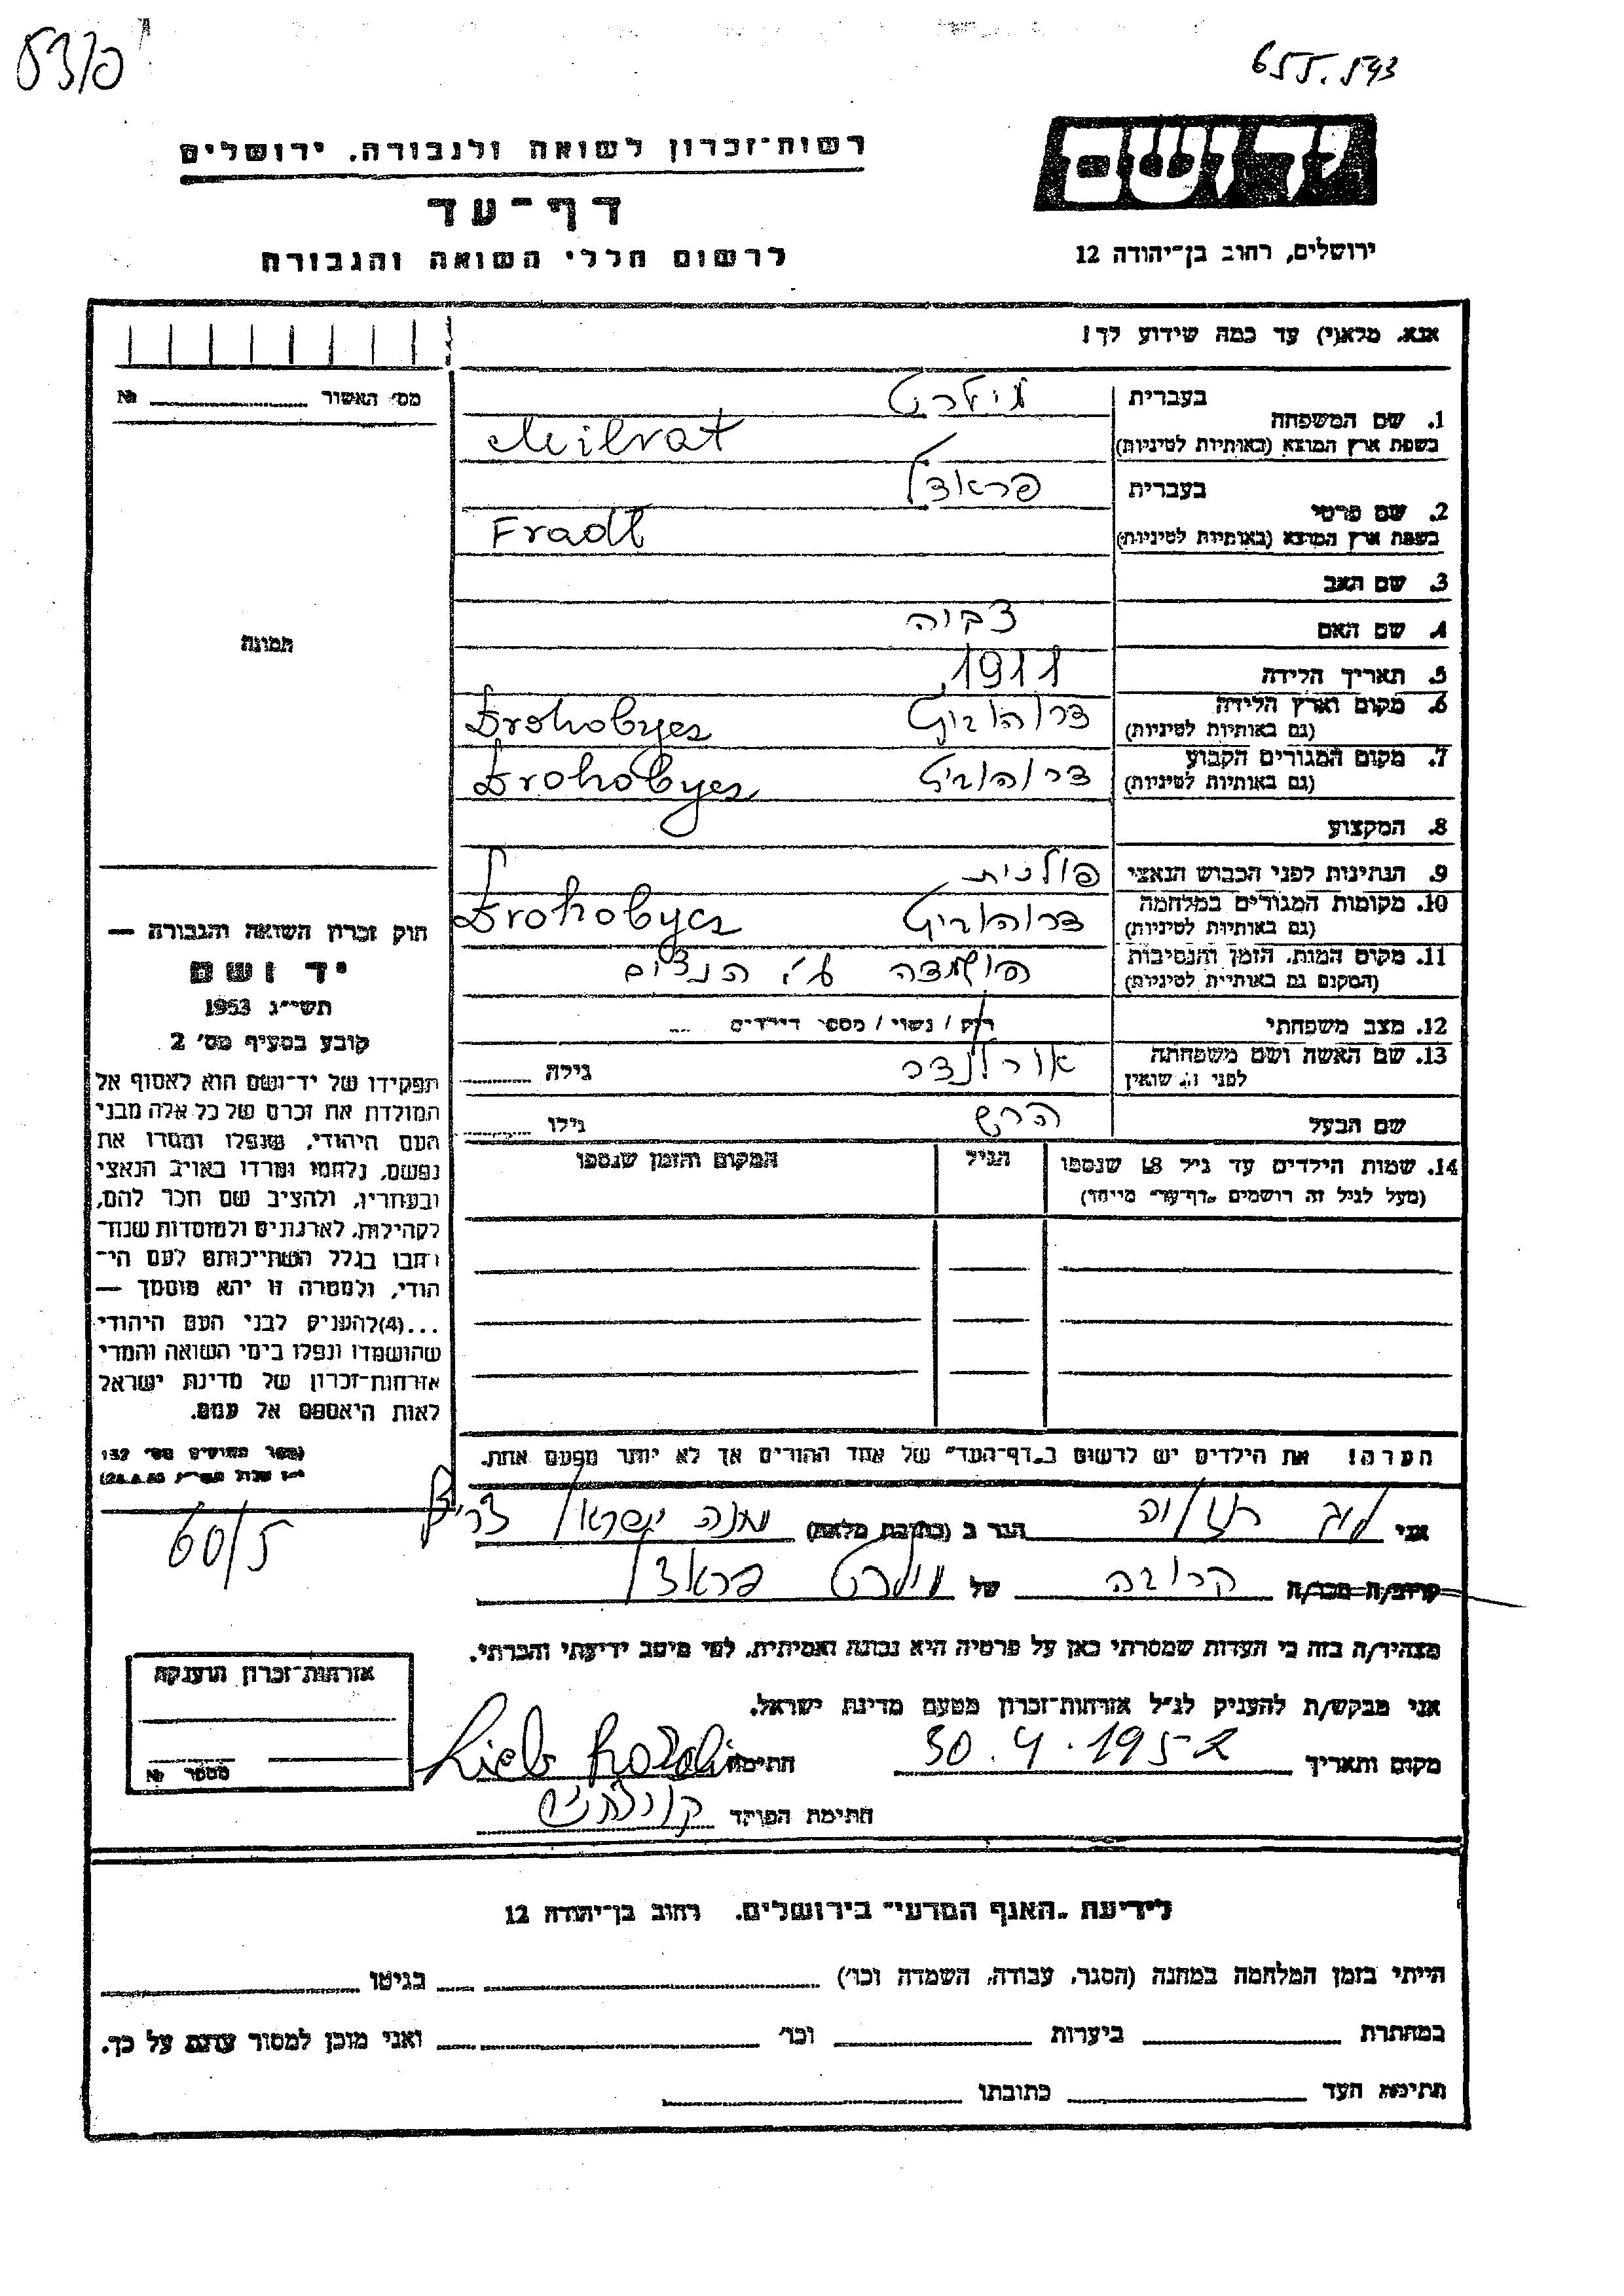 655.543
רשות־זכרון לשואה ולגבורה. ירושלים
דף־עד
לרשום חללי השואה והגבורה
יד ושם
ירושלים, רחוב בן־יהודה 12
אנא, מלא(י) עד כמה שידוע לך!
מס׳ האשור №
1. שם המשפחה
בעברית מילרט
בשפת ארץ המוצא (באותיות לטיניות) Milrat
2. שם פרטי
בעברית פראדל
בשפת ארץ המוצא (באותיות לטיניות) Fradl
3. שם האב
4. שם האם צביה
5. תאריך הלידה 1911
6. מקום וארץ הלידה דרוהוביט Drohobyes
(גם באותיות לטיניות)
7. מקום המגורים הקבוע דרוהוביט Drohobyes
(גם באותיות לטיניות)
8. המקצוע
9. הנתינות לפני הכבוש הנאצי פולנית
10. מקומות המגורים במלחמה דרוהוביט Drohobyes
(גם באותיות לטיניות)
11. מקום המות, הזמן והנסיבות הושמדה ע״י הנצים
(המקום גם באותיות לטיניות)
12. מצב משפחתי רוק / נשוי / מספר הילדים
13. שם האשה ושם משפחתה אורלנדר גילה
לפני הנשואין
שם הבעל הרש גילו
14. שמות הילדים עד גיל 18 שנספו הגיל המקום והזמן שנספו
(מעל לגיל זה רושמים „דף־עד״ מיוחד)
הערה! את הילדים יש לרשום ב„דף־העד״ של אחד ההורים אך לא יותר מפעם אחת.
תמונה
חוק זכרון השואה והגבורה —
יד ושם
תשי״ג 1953
קובע בסעיף מס׳ 2
תפקידו של יד־ושם הוא לאסוף אל
המולדת את זכרם של כל אלה מבני
העם היהודי, שנפלו ומסרו את
נפשם, נלחמו ומרדו באויב הנאצי
ובעוזריו, ולהציב שם וזכר להם,
לקהילות, לארגונים ולמוסדות שנח־
רבו בגלל השתייכותם לעם הי־
הודי, ולמטרה זו יהא מוסמך —
...(4)להעניק לבני העם היהודי
שהושמדו ונפלו בימי השואה והמרי
אזרחות־זכרון של מדינת ישראל
לאות היאספם אל עמם.
(ספר החוקים מס׳ 132
60/5
אני הגר ב (כתובת מלאה) מחנה ישראל צריף
קרוב/ה מכר/ה קרובה של מילרט פראדל
מצהיר/ה בזה כי העדות שמסרתי כאן על פרטיה היא נכונה ואמיתית, לפי מיטב ידיעתי והכרתי.
אני מבקש/ת להעניק לנ״ל אזרחות־זכרון מטעם מדינת ישראל.
מקום ותאריך 30.4.1957 חתימה Lieb Rozalia
חתימת הפוקד
אזרחות־זכרון הוענקה
מספר №
לידיעת „האגף המדעי״ בירושלים. רחוב בן־יהודה 12
הייתי בזמן המלחמה במחנה (הסגר, עבודה, השמדה וכו׳) בגיטו
במחתרת ביערות וכו׳ ואני מוכן למסור עדות על כך.
חתימת העד כתובתו